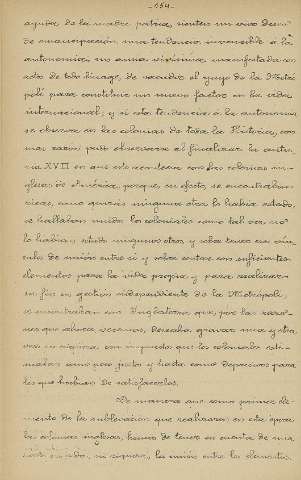 -154-
ayuda de la madre patria, sienten un vivo deseo
de emancipación, una tendencia irresistible á la
autonomía, un ansia vivísima, manifestada en
actos de todo linaje, de sacudir el yugo de la Metró
poli para constituir un nuevo factor en la vida
internacional; y si esta tendencia á la autonomía
se observa en las colonias de toda la Historia, con
mas razon pudo observarse al finalizar la centu
ria XVII en que esto acontecía con las colonias in-
glesas de América, porque, en efecto, se encontraban
ricas, como quizás ninguna otra lo habia estado,
se hallaban unidos los coloniales como tal vez no
lo habia estado ninguna otra, y sobre tener un vín-
culo de unión entre sí y sobre contar con suficientes
elementos para la vida propia y para realizar
en fin su gestion independiente de la Metropoli,
se encontraban con Inglaterra que, por las razo-
nes que ahora veremos, deseaba gravar una y otra
vez su régimen con impuestos que los coloniales esti-
maban como poco justos y hasta como depresivos para
los que habian de satisfacerlos.
De manera que como primer ele-
mento de la sublevación que realizaron en esta época
las colonias inglesas, hemos de tener en cuenta de una
parte, la unión entre los elementos